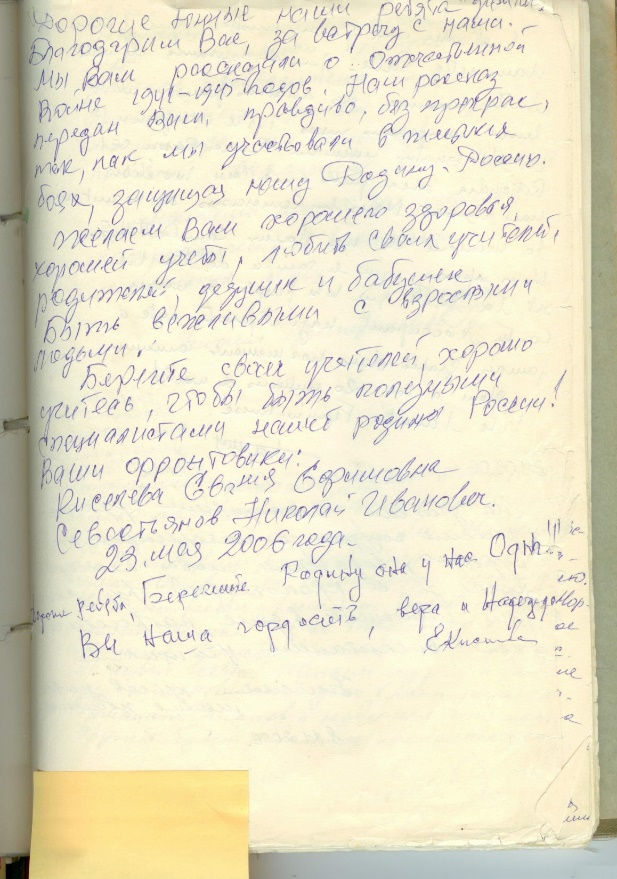 Дорогие юные наши ребята
Благодарим Вас, за встречу с нами.
Мы Вам рассказали о Отечественной
Войне 1941-1945 годов. Наш рассказ
передан Вам, правдиво, без прекрас,
так, как мы участвовали в
боях, защищая нашу Родину-Россию.
Желаем Вам хорошего здоровья,
хорошей учебы, любить своих учителей,
родителей, дедушек и бабушек
Быть вежливыми с взрослыми
людьми.
Берегите своих учителей, хорошо
учитесь, чтобы быть полезными
специалистами нашей родины России!
Ваши фронтовики:
Киселева Ефимовна
Севостьянов Николай Иванович.
23. мая 2006 года.
ребята, Берегите Родину она у нас Одна!!!
Вы наша гордость, вера и Надежда